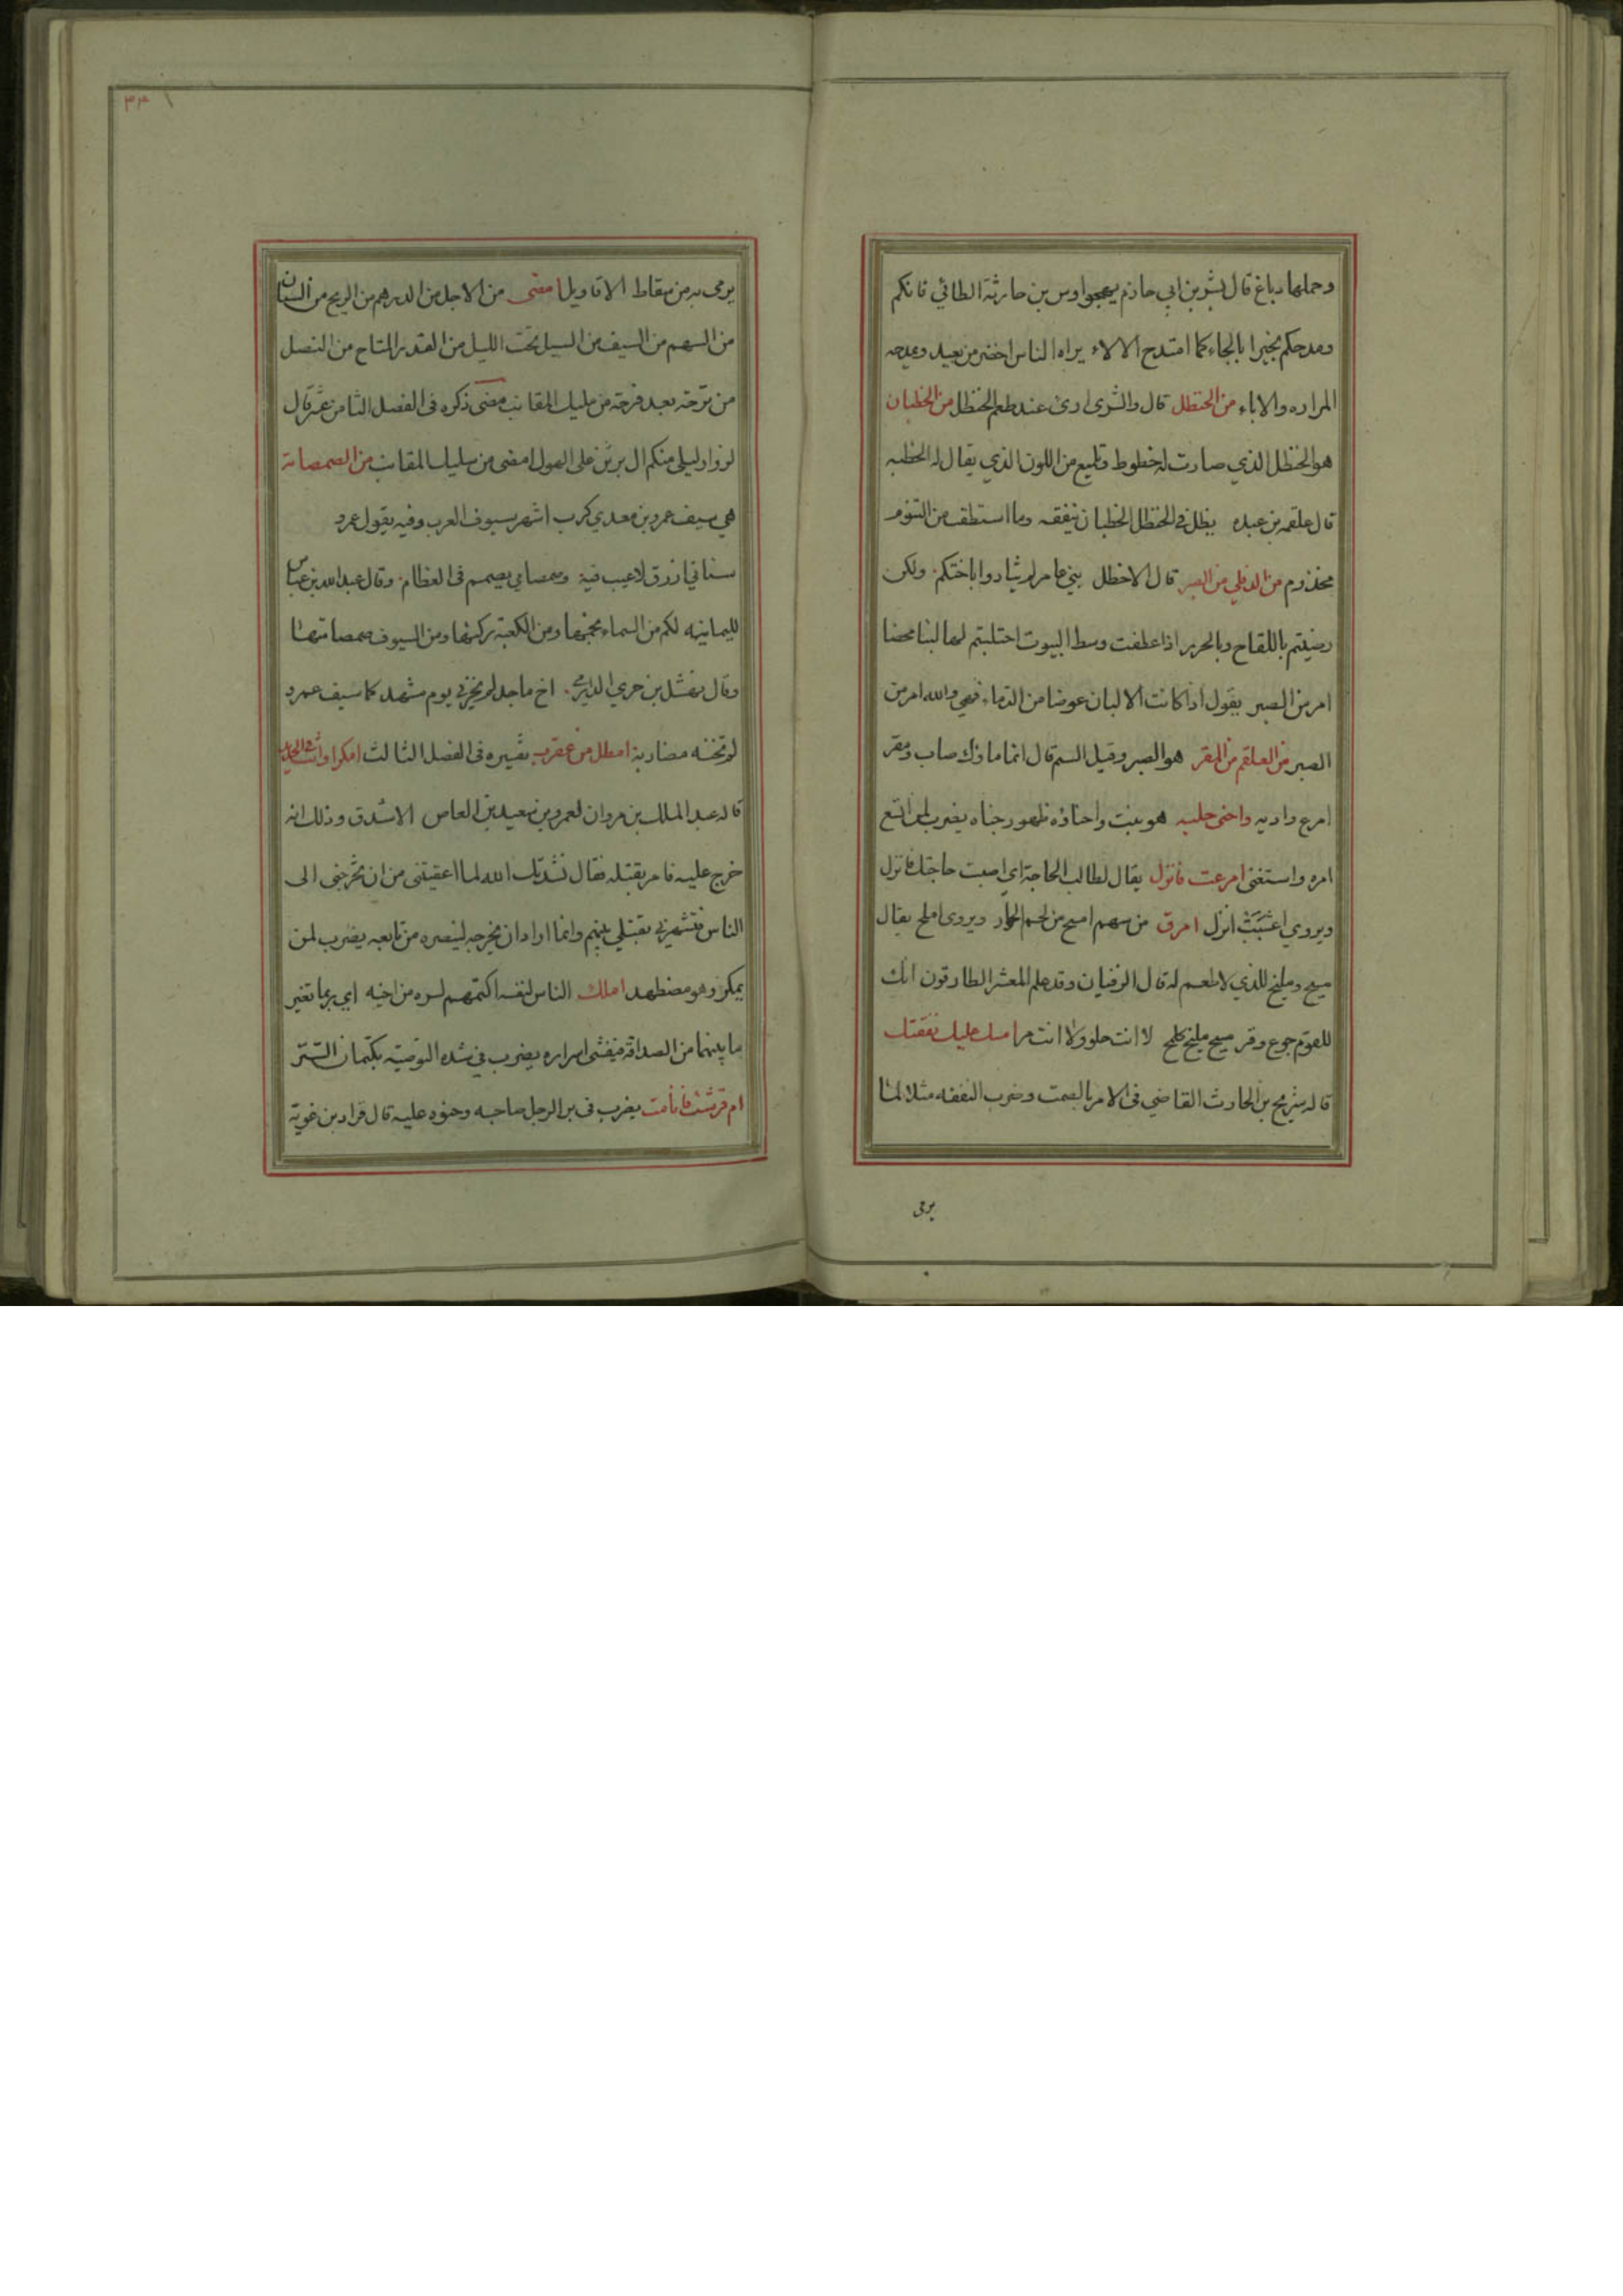 وحملها دباغ قال بشر بن ابي حازم يهجوا اوس بن حارثة الطائي فانكم
ومدحكم بجيرا بالجاء كما امتدح الالاء يراه الناس اخضر من بعيد ويمنعه
المراره والاباء من الحنظل قال والشرى ارى عند طعم الحنظل من الخطبان
هو الحنظل الذي صارت له خطوط وتلميع من اللون الذي يقال له الخطبه
قال علقمه بن عبده يظل في الحنظل الخطبان ينقفه وما استطف من التنوم
مخذوم من الدفلي من الصبر قال الاخطل بني عامر لم يثاروا باخيكم ولكن
رضيتم باللقاح وبالحزر اذا عطفت وسط البيوت احتلبتم لها لبنا محضا
امر من الصبر يقول اذا كانت الالبان عوضا من الدماء فهي والله امر من
الصبر من العلقم من المقر هو الصبر وقيل السم قال انما ماوك صاب ومقر
امرع واديه واجنى حلبه هو نبت واجناؤه ظهور جناه يضرب لمن اتسع
امره واستغنى امرعت فانزل يقال لطالب الحاجة اي اصبت حاجتك فانزل
ويروي اعشبت انزل امرق من سهم امسخ من لحم الحوار ويروى املح يقال
مسيخ ومليخ للذي لا طعم له قال الرفيان وقد علم المعشر الطارقون انك
للقوم جوع وقر مسيخ مليخ كلحم لا انت حلو ولا انت مر امسك عليك نفقتك
قاله شريح بن الحارث القاضي في الامر بالصمت وضرب النفقه مثلا لما
يرمى
يرمى به من سقاط الاقاويل امضى من الاجل من الدرهم من الريح من السنان
من السهم من السيف من السيل تحت الليل من القدر المتاح من النصل
من ترحة بعد فرحة من سليك المقانب مضى ذكره في الفصل الثامن عشر قال
لزوار ليلى منكم ال برثن على الهول امضى من سليك المقانب من الصمصامة
هي سيف عمرو بن معدي كرب اشهر سيوف العرب وفيه يقول عمرو
سناني ازرق لا عيب فيه وصمصامي يصمم في العظام وقال عبد الله بن عباس
لليمانيه لكم من السماء نجمها ومن الكعبة ركنها ومن السيوف صمصامتها
وقال نهشل بن حري الدارمي اخ ماجد لم يخزني يوم مشهد كما سيف عمرو
لم تخنه مضاربه امطل من عقرب تفسيره في الفصل الثالث امكرا وانت في الحديد
قاله عبد الملك بن مروان لعمرو بن سعيد بن العاص الاشدق وذلك انه
خرج عليه فامر بقتله فقال نشدتك الله لما اعفيتني من ان تخرجني الى
الناس فتشهرني بقتلي بينهم وانما اراد ان يخرجه لينصره من تابعه يضرب لمن
يمكر وهو مضطهد املك الناس لنفسه اكتمهم لسره من اخيه اي ربما تغير
ما بينهما من الصداقة فيفشى اسراره يضرب في شده التوصية بكتمان التستر
ام فرشت فانامت يضرب في بر الرجل صاحبه وحنوه عليه قال قراد بن غوية